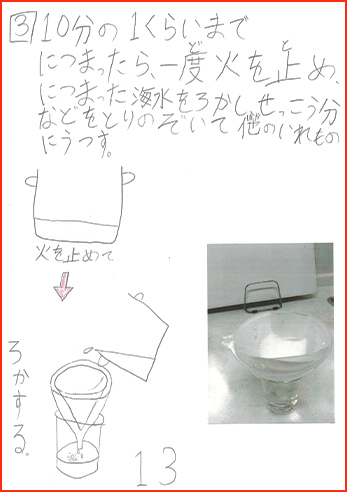 ③10分の1くらいまで
につまったら、一度火を止め、
につまった海水をろかし、せっこう分
などをとりのぞいて他のいれもの
にうつす。
火を止めて
ろかする。
13